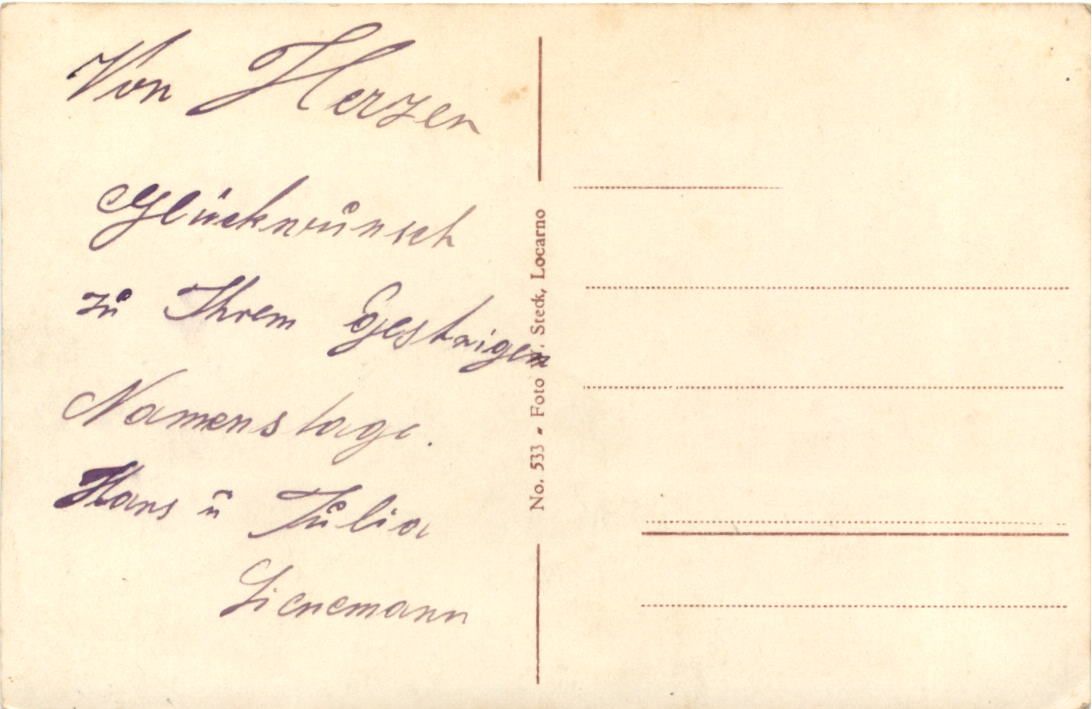 Von Herzen
Glückwunsch
zu Ihrem Gestrigen
Namenstage.
Hans u Julia
Lienemann
No. 533 - Foto W. Steck, Locarno